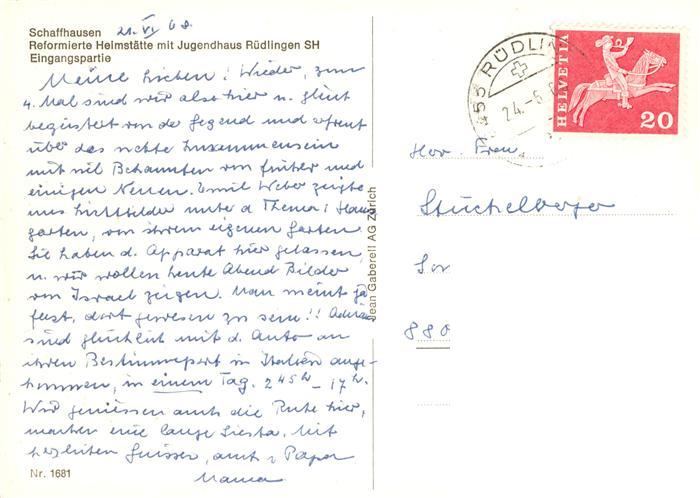 Schaffhausen 21. VI 68.
Reformierte Heimstätte mit Jugendhaus Rüdlingen SH
Eingangspartie
Meine Lieben! Wieder, zum
4. Mal sind wir also hier u. gleich
begeistert von der Gegend und erfreut
über das nette Zusammensein
mit viel Bekannten von früher und
einigen Neuen. Emil Weber zeigte
uns Lichtbilder unter d Thema: Haus
garten, von ihrem eigenen Garten.
Sie haben d. Apparat hier gelassen,
u. wir wollen heute Abend Bilder
von Israel zeigen. Man meint ja
fast, dort gewesen zu sein!!
sind glücklich mit d. Auto an
ihren Bestimmungsort in Italien ange-
kommen, in einem Tag. 2 45 h – 17 h.
Wir geniessen auch die Ruhe hier,
machen eine lange Siesta. Mit
herzlichen Grüssen, auch v Papa
Mama
Nr. 1681
Jean Gaberell AG Zürich
8455 RÜDLIN
24.-6.
HELVETIA
20
Herr. Frau
Stückelberger
Son
880